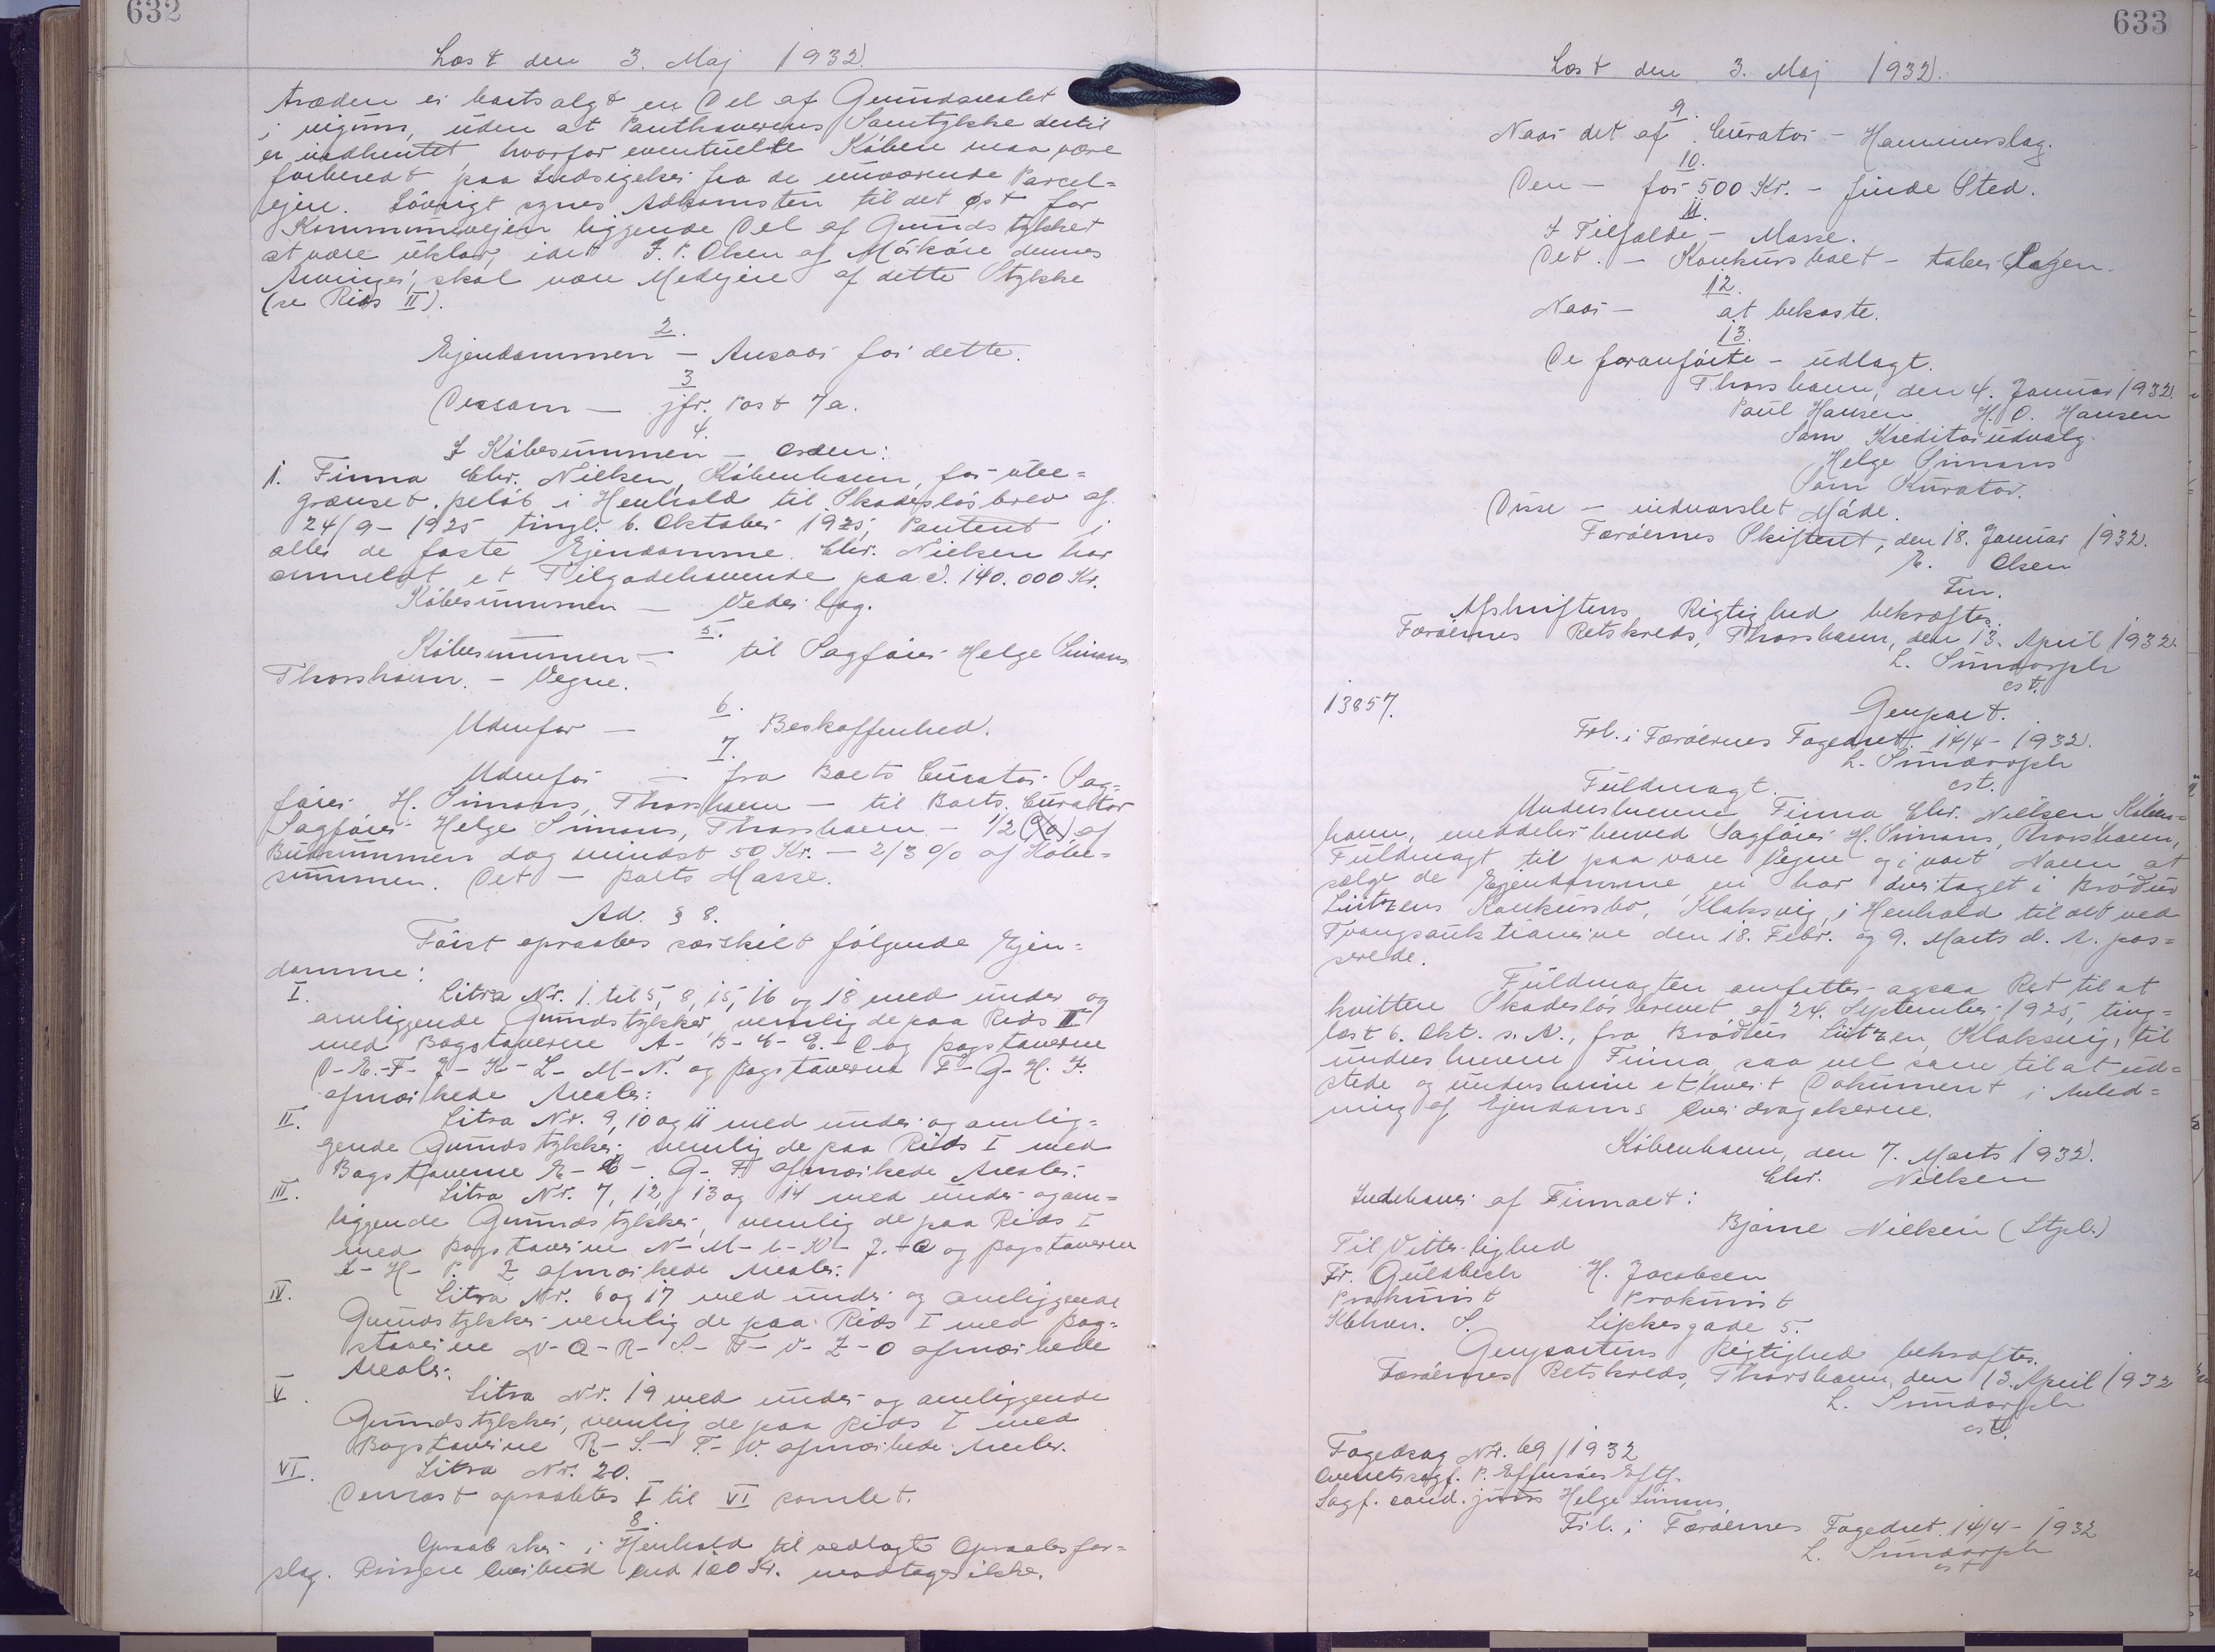 632
Læst den 3. Maj 1932.
træden er bortsolgt en Del af Grundarealet
i uigum, uden at Panthaverens Samtykke dertil
er indhentet, hvorfor eventuelle Købere maa være
forberedt paa Indsigelser fra de nuværende Parcel=
ejere. Iøvrigt synes Adkomsten til det øst for
Kommunevejen liggende Del af Grundstykket
at være uklar, idet J. P. Olsen af Mårkåre dennes
Arvinger, skal være Medejere af dette Stykke
(se Rids II).
2.
Ejendommen – Ansvar for dette.
3
Dersom – jfr. Post 7a.
4.
I Købesummen – orden:
1. Firma Chr. Nielsen, København, for ube=
grænset beløb i Henhold til Skadesløsbrev af
24/9 – 1925 tingl. 6. Oktober 1925, Panteret i
alle de faste Ejendomme. Chr. Nielsen har
anmeldt et Tilgodehavende paa c. 140.000 Kr.
Købesummen – Vederlag.
5.
Købesummen – til Sagfører Helge Simons
Thorshavn. – Vegne.
6.
Udenfor – Beskaffenhed.
7.
Udenfor – fra Boets Curator Sag=
fører H. Simons, Thorshavn – til Boets Curator
Sagfører Helge Simons, Thorshavn – 1/2 (%) af
Budsummen dog mindst 50 Kr. – 2/3 % af Købe=
summen. Det – Boets Masse.
Ad. § 8.
Først opraabes særskilt følgende Ejen=
domme:
I. Litra Nr. 1 til 5, 8, 15, 16 og 18 med under og
omliggende Grundstykker, nemlig de paa Rids II
med Bogstaverne A- B- C- E.- D og Bogstaverne
D- E.- F- J- K- L- M- N. og Bogstaverne F- G- H. I.
afmærkede Arealer.
II. Litra Nr. 9, 10 og 11 med under- og omlig=
gende Grundstykker, nemlig de paa Rids I med
Bogstaverne - G- F afmærkede Arealer.
III. Litra Nr. 7, 12, 13 og 14 med under- og om=
liggende Grundstykker, nemlig de paa Rids I
med Bogstaverne N- M- L- K- J.- Q og Bogstaverne
I- H- P. Z afmærkede Arealer.
IV. Litra Nr. 6 og 17 med under- og omliggende
Grundstykker nemlig de paa Rids I med Bog=
staverne N- Q- R- S.- T- V- Z- O afmærkede
Arealer.
V. Litra Nr. 19 med under- og omliggende
Grundstykker, nemlig de paa Rids I med
Bogstaverne R- S.- T- V. afmærkede Arealer.
VI. Litra Nr. 20.
Dernæst opraabtes I til VI samlet.
8.
Opraab sker i Henhold til vedlagte Opraabsfor=
slag. Ringere Overbud end 100 Kr. modtages ikke.
633
Læst den 3. Maj 1932.
9.
Naar det af Curator – Hammerslag.
10.
Den – for 500 Kr. – finde Sted.
11.
I Tilfælde – Masse.
Det. – Konkursboet – taber Sagen.
12.
Naar – at bekoste.
13.
De foranførte – udlagt.
Thorshavn, den 4. Januar 1932.
Paul Hansen H. O. Hansen
Som Kreditorudvalg.
Helge Simons
Som Kurator.
Disse – indvarslet Måde.
Færøernes Skifteret, den 18. Januar 1932.
E. Olsen
Fm.
Afskriftens Rigtighed bekræftes.
Færøernes Retskreds, Thorshavn, den 13. April 1932.
L. Sundorph
cst.
13857.
Genpart.
Frl. i Færøernes Fogedret. 14/4 – 1932.
L. Sundorph
cst.
Fuldmagt.
Undertegnede Firma Chr. Nielsen Køben=
havn, meddeler herved Sagfører H. Simons, Thorshavn,
Fuldmagt til paa vore Vegne og i vort Navn at
sælge de Ejendomme, vi har overtaget i Brødur
Lützens Konkursbo, Klaksvig, i Henhold til det ved
Tvangsauktionerne den 18. Febr. og 9. Marts d. A. pas=
serede.
Fuldmagten omfatter ogsaa Ret til at
kvittere Skadesløsbrevet af 24. September 1925, ting=
læst 6. Okt. s. A., fra Brødur Lützen, Klaksvig, til
Firma, saa vel som til at ud=
stede og underskrive ethvert Dokument i Anled=
ning af Ejendoms Overdragelserne.
København, den 7. Marts 1932.
Chr. Nielsen
Indehaver af Firmaet:
Bjarne Nielsen (Stpl.)
Til Vitterlighed
Fr. Guldbech H. Jacobsen
Prokurist Prokurist
Kbhvn. S. Lipkesgade 5.
Genpartens Rigtighed bekræftes.
Færøernes Retskreds, Thorshavn, den 13. April 1932
L. Sundorph
cst.
Fogedsag Nr. 69/1932
Overretssagf. P. Effersøes Eftf.
Sagf. cand. juris Helge Simons.
Frl. i Færøernes Fogedret. 14/4 – 1932
L. Sundorph
cst